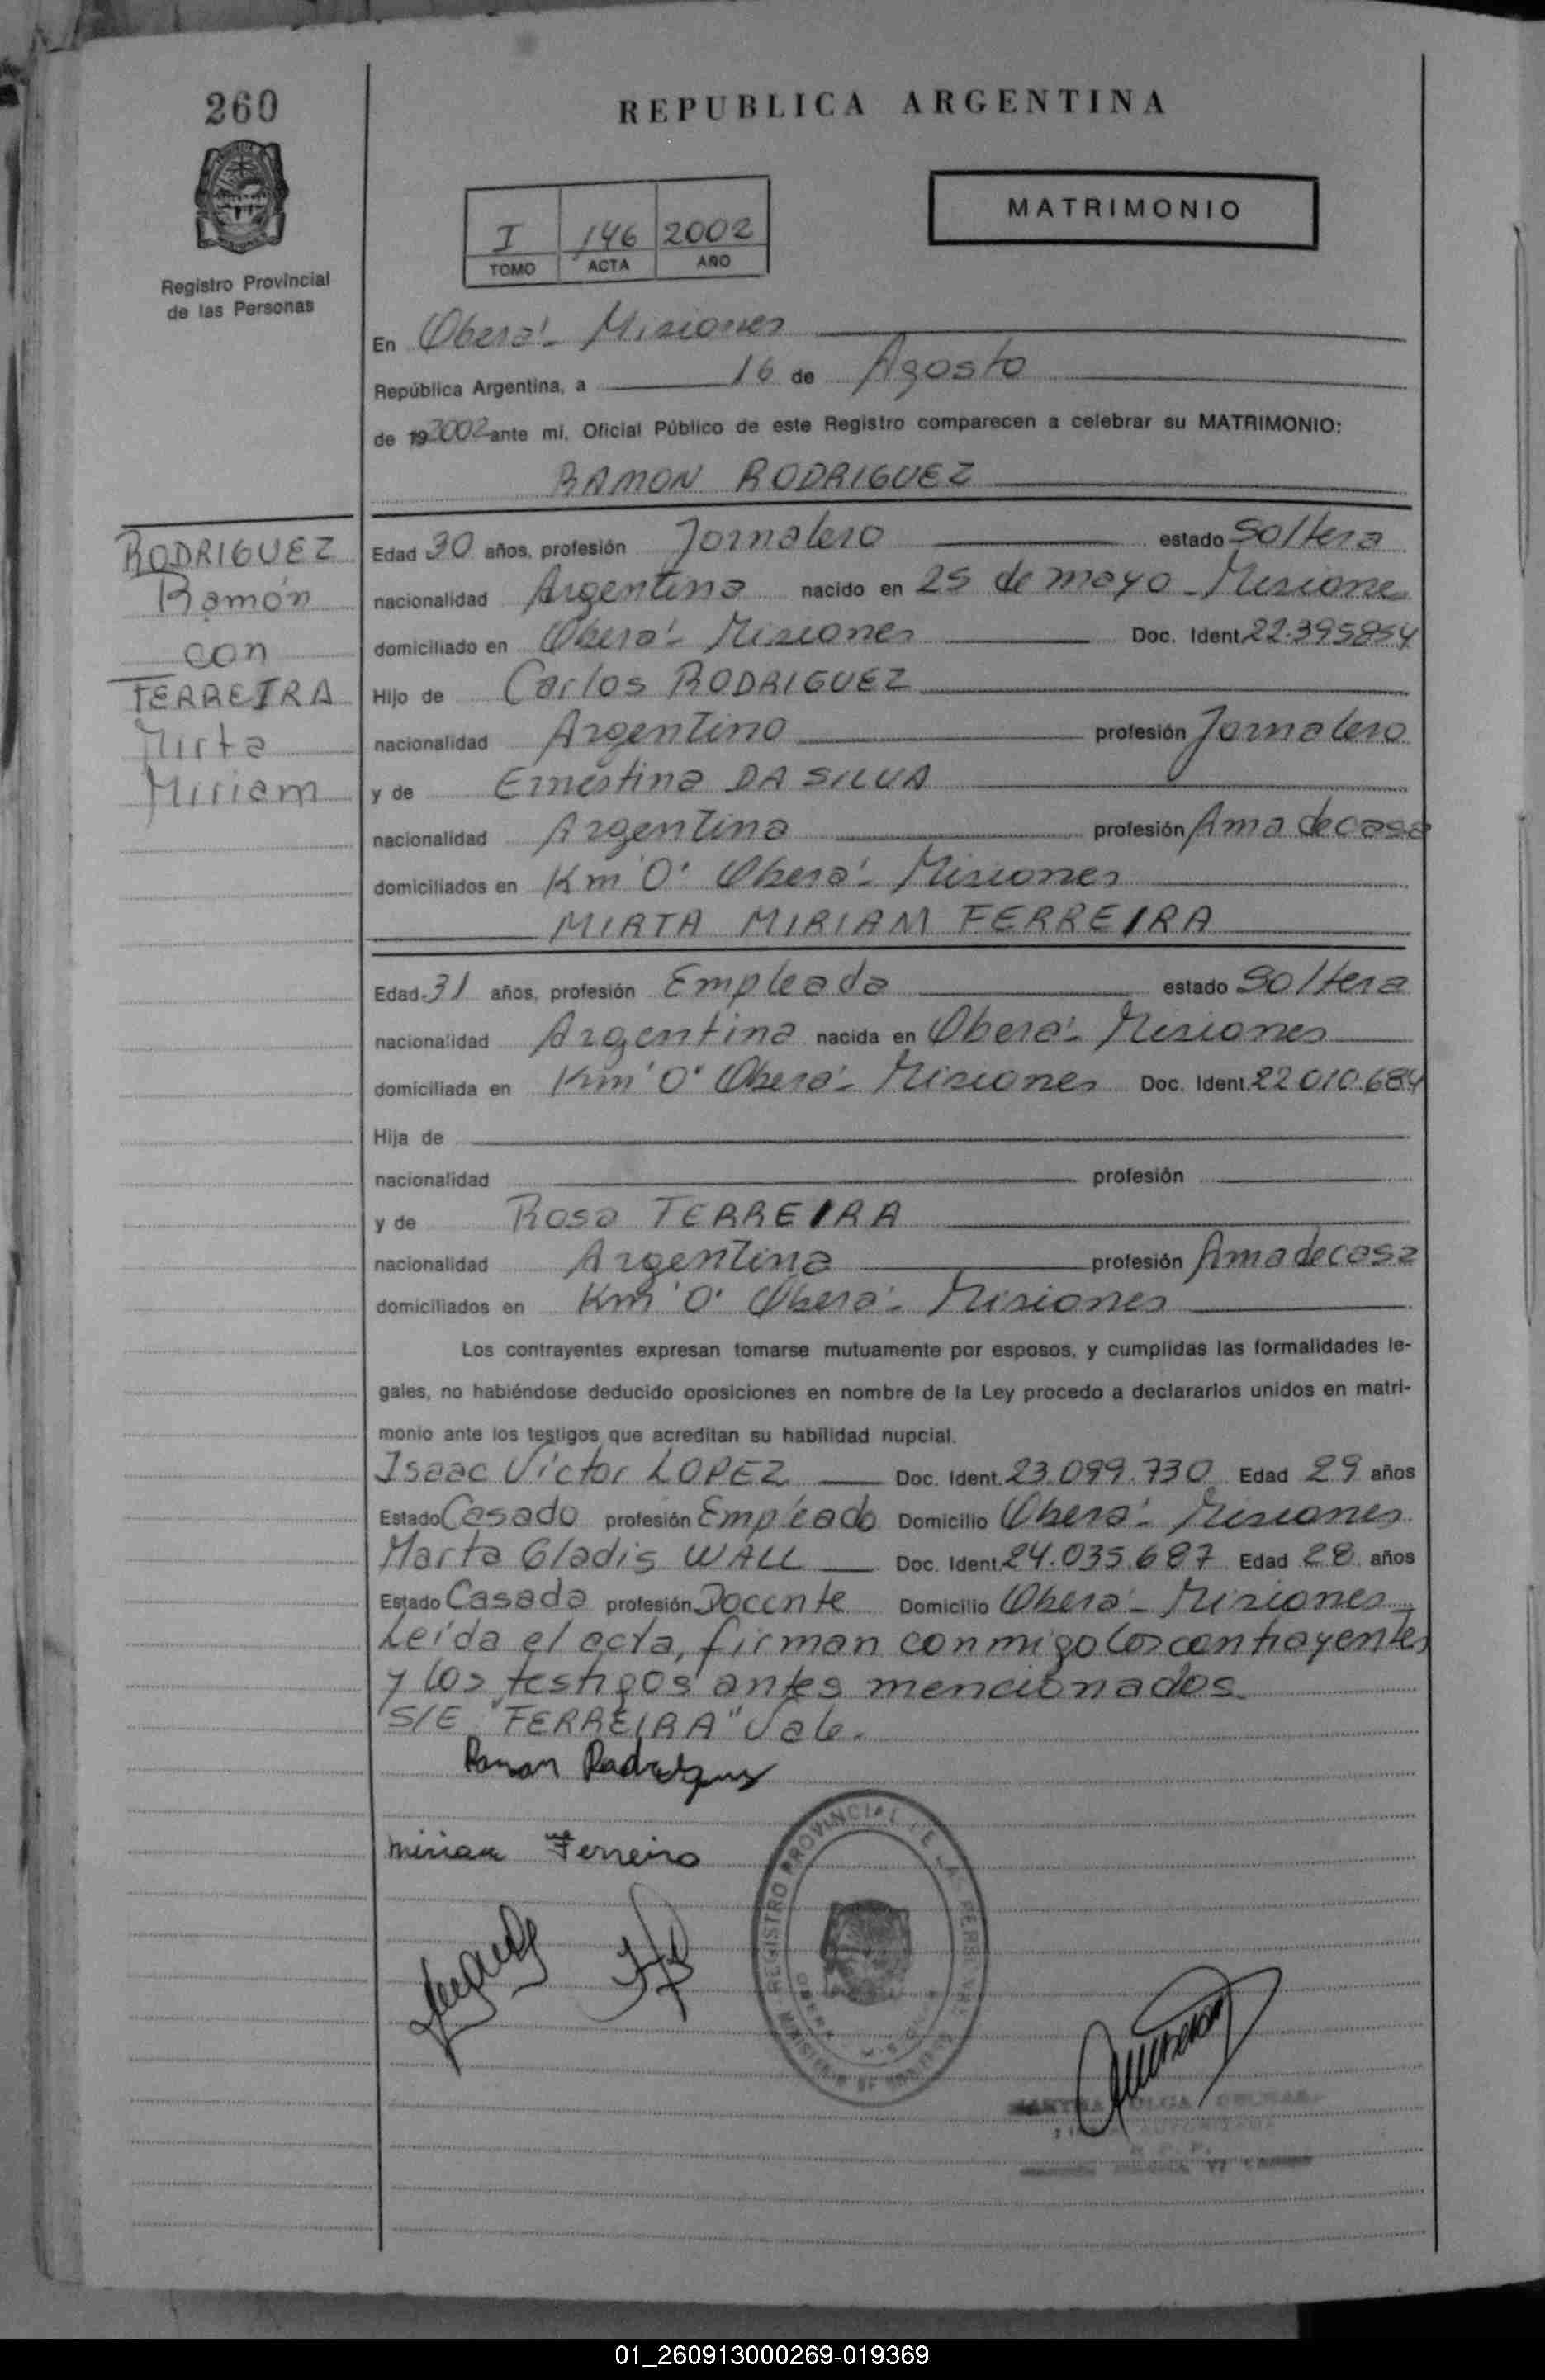 260
REPUBLICA ARGENTINA
MATRIMONIO
I 146 2002
TOMO ACTA AÑO
Registro Provincial
de las Personas
En Oberá - Misiones
República Argentina, a 16 de Agosto
de 192002 ante mi, Oficial Público de este Registro comparecen a celebrar su MATRIMONIO:
RAMON RODRIGUEZ
RODRIGUEZ
Ramón
con
FERREIRA
Mirta
Miriam
Edad 30 años, profesión Jornalero estado Soltera
nacionalidad Argentina nacido en 25 de mayo - Misiones
domiciliado en Oberá - Misiones Doc. Ident. 22.395854
Hijo de Carlos RODRIGUEZ
nacionalidad Argentino profesión Jornalero
y de Ernestina DA SILVA
nacionalidad Argentina profesión Ama de casa
domiciliados en Km "0" Oberá - Misiones
MIRTA MIRIAM FERREIRA
Edad 31 años, profesión Empleada estado Soltera
nacionalidad Argentina nacida en Oberá - Misiones
domiciliada en Km "0" Oberá - Misiones Doc. Ident. 22.010.684
Hija de
nacionalidad profesión
y de Rosa FERREIRA
nacionalidad Argentina profesión Ama de casa
domiciliados en Km "0" Oberá - Misiones
Los contrayentes expresan tomarse mutuamente por esposos, y cumplidas las formalidades le-
gales, no habiéndose deducido oposiciones en nombre de la Ley procedo a declararlos unidos en matri-
monio ante los testigos que acreditan su habilidad nupcial.
Isaac Victor LOPEZ Doc. Ident. 23.099.730 Edad 29 años
Estado Casado profesión Empleado Domicilio Oberá - Misiones
Marta Gladis WALL Doc. Ident. 24.035.687 Edad 28 años
Estado Casada profesión Docente Domicilio Oberá - Misiones
Leída el acta, firman conmigo los contrayentes
y los testigos antes mencionados
S/E "FERREIRA" Vale.
Ramon Rodriguez
Miriam Ferreira
REGISTRO PROVINCIAL DE LAS PERSONAS
OLGA
01_260913000269-019369